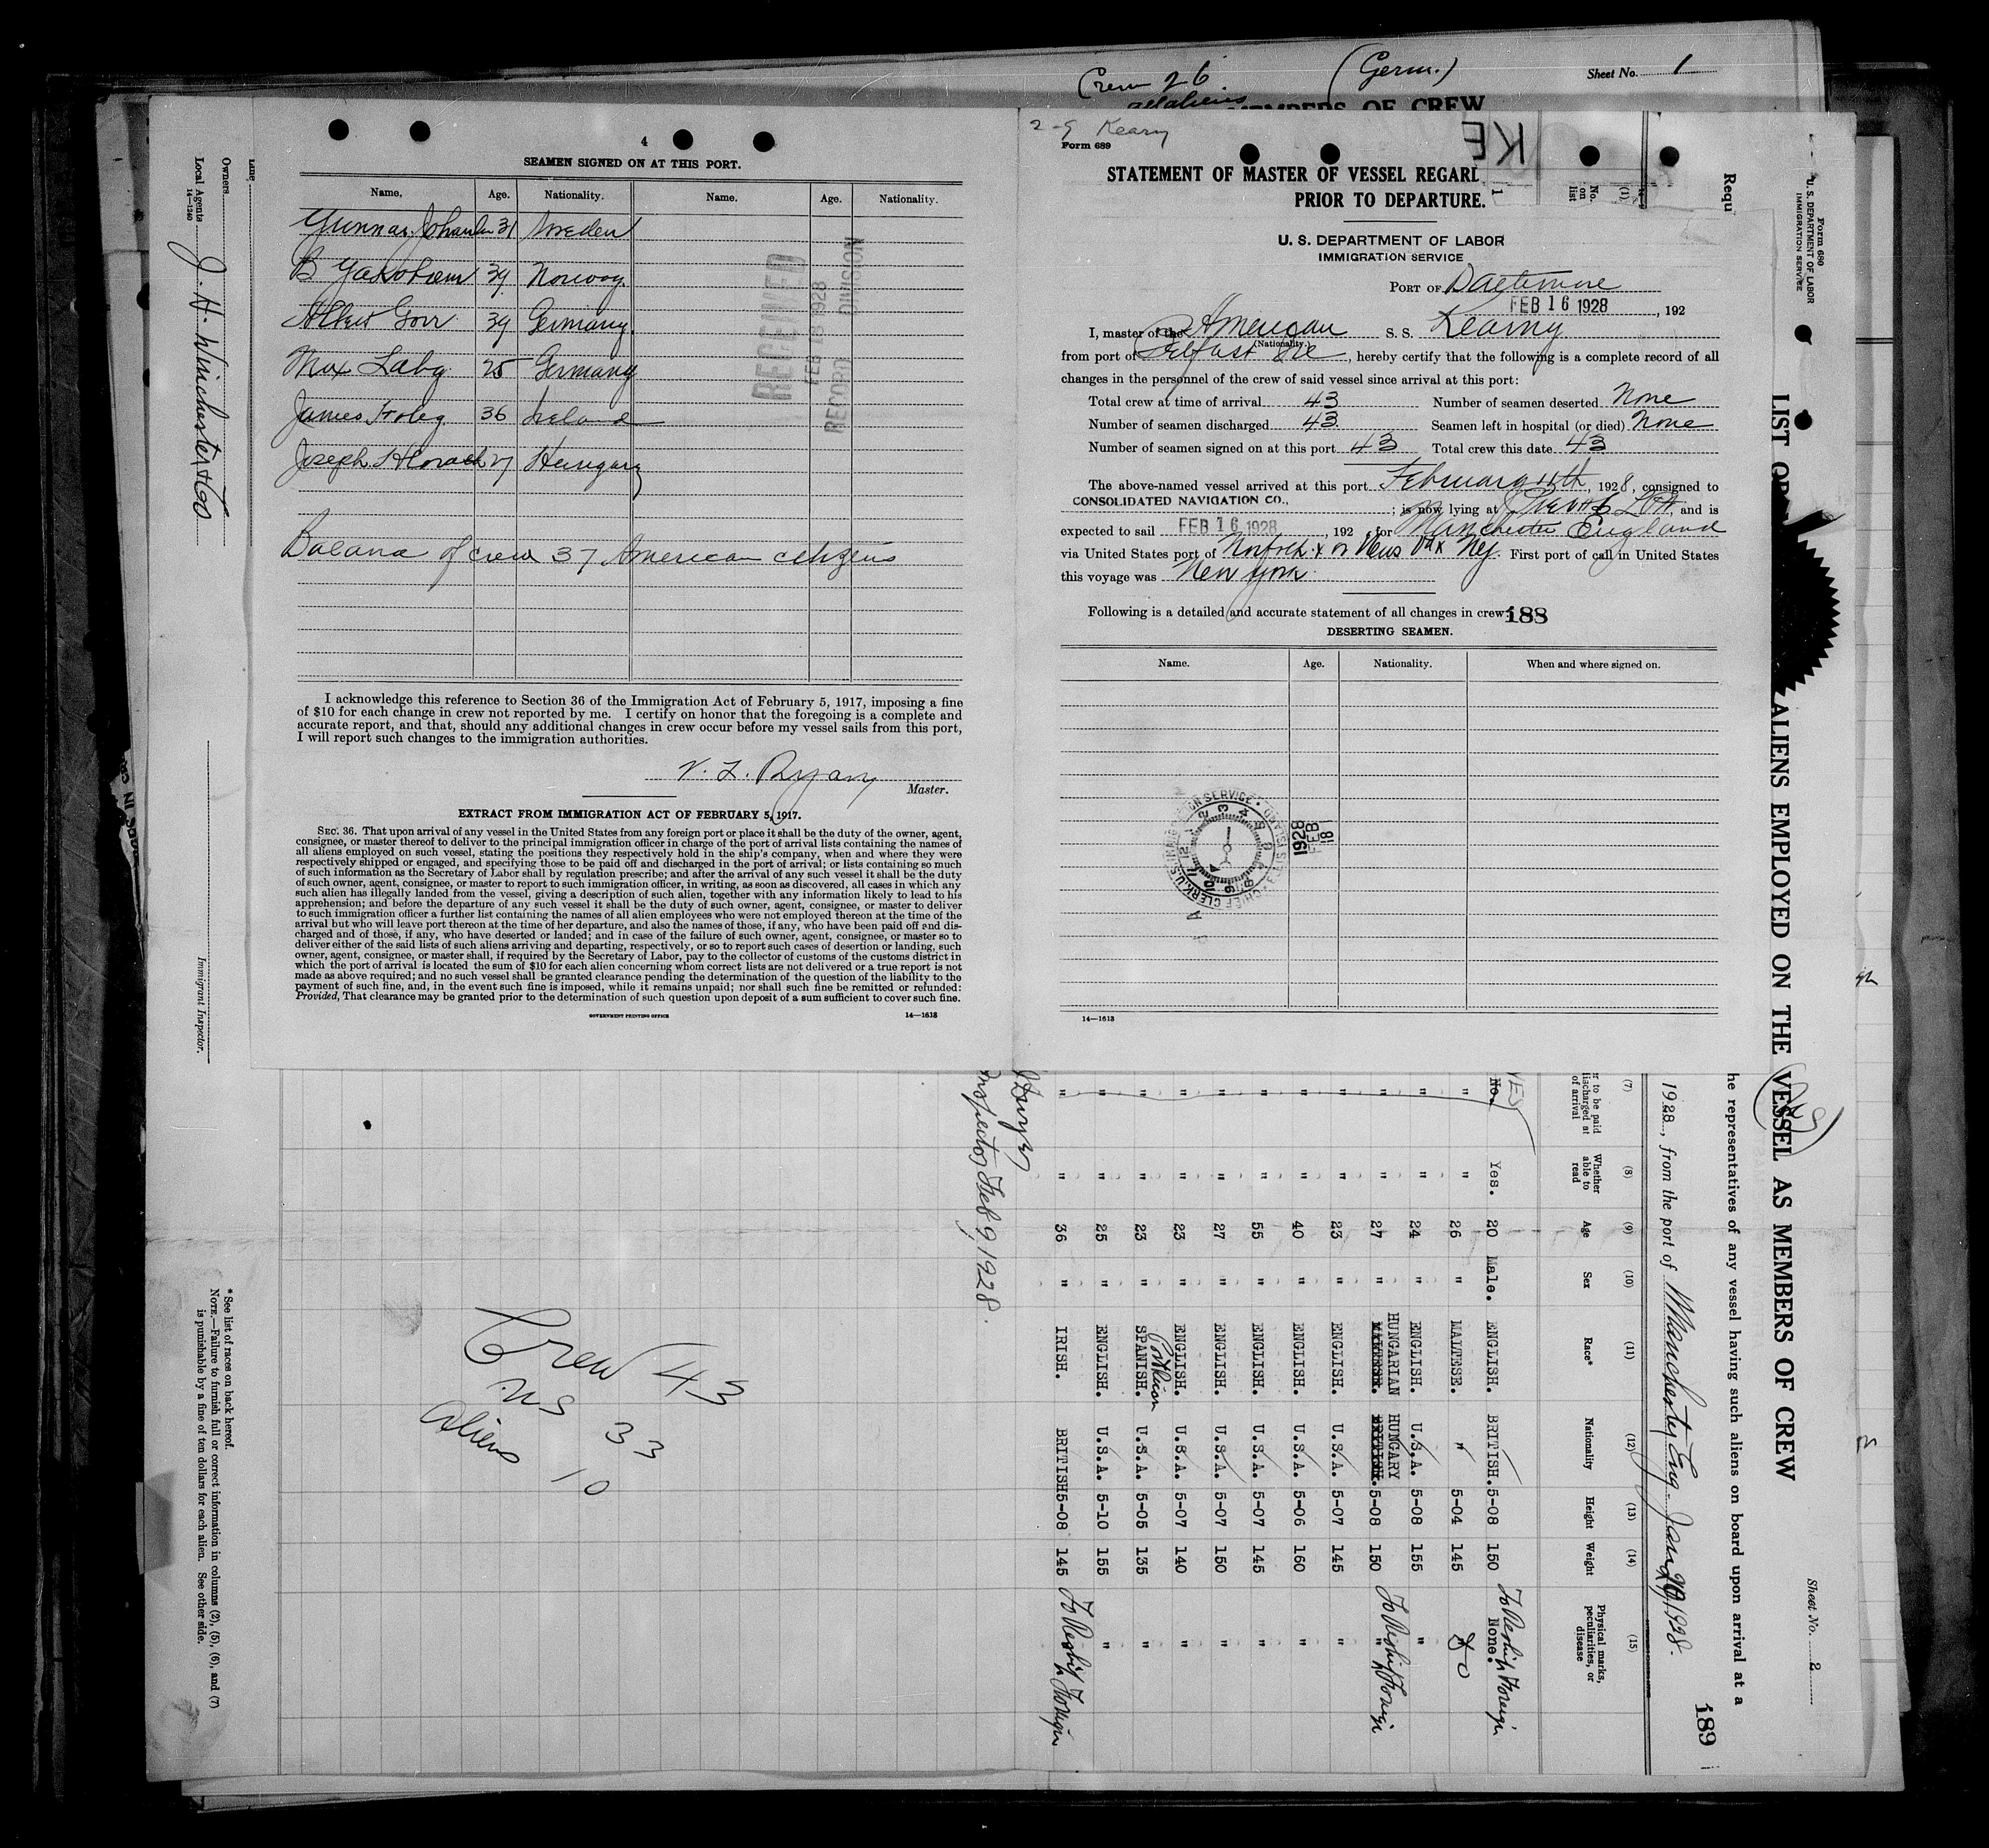 Crew 26 (Germ.) Sheet No. 1
MEMBERS OF CREW
4
SEAMEN SIGNED ON AT THIS PORT.
Name. Age. Nationality. Name. Age. Nationality.
Gunnar 31 Sweden
B 39 Norway
Albert Gorr 39 Germany.
Max Laby 25 Germany
James 36 Ireland
Joseph Horach 27 Hungary
of crew 37 American citizens
RECEIVED
FEB 18 1928
RECORD DIVISION
I acknowledge this reference to Section 36 of the Immigration Act of February 5, 1917, imposing a fine
of $10 for each change in crew not reported by me. I certify on honor that the foregoing is a complete and
accurate report, and that, should any additional changes in crew occur before my vessel sails from this port,
I will report such changes to the immigration authorities.
V. L. Ryan
Master.
EXTRACT FROM IMMIGRATION ACT OF FEBRUARY 5, 1917.
SEC. 36. That upon arrival of any vessel in the United States from any foreign port or place it shall be the duty of the owner, agent,
consignee, or master thereof to deliver to the principal immigration officer in charge of the port of arrival lists containing the names of
all aliens employed on such vessel, stating the positions they respectively hold in the ship's company, when and where they were
respectively shipped or engaged, and specifying those to be paid off and discharged in the port of arrival; or lists containing so much
of such information as the Secretary of Labor shall by regulation prescribe; and after the arrival of any such vessel it shall be the duty
of such owner, agent, consignee, or master to report to such immigration officer, in writing, as soon as discovered, all cases in which any
such alien has illegally landed from the vessel, giving a description of such alien, together with any information likely to lead to his
apprehension; and before the departure of any such vessel it shall be the duty of such owner, agent, consignee, or master to deliver
to such immigration officer a further list containing the names of all alien employees who were not employed thereon at the time of the
arrival but who will leave port thereon at the time of her departure, and also the names of those, if any, who have been paid off and dis-
charged and of those, if any, who have deserted or landed; and in case of the failure of such owner, agent, consignee, or master so to
deliver either of the said lists of such aliens arriving and departing, respectively, or so to report such cases of desertion or landing, such
owner, agent, consignee, or master shall, if required by the Secretary of Labor, pay to the collector of customs of the customs district in
which the port of arrival is located the sum of $10 for each alien concerning whom correct lists are not delivered or a true report is not
made as above required; and no such vessel shall be granted clearance pending the determination of the question of the liability to the
payment of such fine, and, in the event such fine is imposed, while it remains unpaid; nor shall such fine be remitted or refunded:
Provided, That clearance may be granted prior to the determination of such question upon deposit of a sum sufficient to cover such fine.
GOVERNMENT PRINTING OFFICE 14—1613
2-9 Kearny
Form 689
STATEMENT OF MASTER OF VESSEL REGARD
PRIOR TO DEPARTURE.
U. S. DEPARTMENT OF LABOR
IMMIGRATION SERVICE
PORT OF Baltimore
FEB 16 1928, 192
I, master of the American S. S. Kearny
(Nationality.)
from port of Belfast Ire, hereby certify that the following is a complete record of all
changes in the personnel of the crew of said vessel since arrival at this port:
Total crew at time of arrival 43 Number of seamen deserted None
Number of seamen discharged 43 Seamen left in hospital (or died) None
Number of seamen signed on at this port 43 Total crew this date 43
The above-named vessel arrived at this port February 11th, 1928, consigned to
CONSOLIDATED NAVIGATION CO., ; is now lying at and is
expected to sail FEB 16 1928, 192 , for Manchester England
via United States port of Norfolk First port of call in United States
this voyage was New York
Following is a detailed and accurate statement of all changes in crew: 188
DESERTING SEAMEN.
Name. Age. Nationality. When and where signed on.
FEB 18 1928
14—1613
Lane
Owners
Local Agents J. H. Winchester & Co
14—1240
Immigrant Inspector.
* See list of races on back hereof.
NOTE.—Failure to furnish full or correct information in columns (2), (5), (6), and (7)
is punishable by a fine of ten dollars for each alien. See other side.
Form 680
U. S. DEPARTMENT OF LABOR
IMMIGRATION SERVICE
Sheet No. 2
LIST OR ALIENS EMPLOYED ON THE VESSEL AS MEMBERS OF CREW
Requ he representatives of any vessel having such aliens on board upon arrival at a
189
1928, from the port of Manchester, Eng. 1928.
(1) (7) (8) (9) (10) (11) (12) (13) (14) (15)
No. on list
r to be paid discharged at of arrival
Whether able to read
Age Sex Race* Nationality Height Weight
Physical marks, peculiarities, or disease
No. YES Yes. 20 Male. ENGLISH. BRITISH. 5-08 150 None. To Reship Foreign
" " 26 " MALTESE. " 5-04 145 " do
" " 24 " ENGLISH. U.S.A. 5-08 155 "
" " 27 " HUNGARIAN HUNGARY 5-08 150 " To Reship Foreign
" " 23 " ENGLISH. U.S.A. 5-07 145 "
" " 40 " ENGLISH. U.S.A. 5-06 160 "
" " 55 " ENGLISH. U.S.A. 5-07 145 "
" " 27 " ENGLISH. U.S.A. 5-07 150 "
" " 23 " ENGLISH. U.S.A. 5-07 140 "
" " 23 " SPANISH. U.S.A. 5-05 135 "
" " 25 " ENGLISH. U.S.A. 5-10 155 "
" " 36 " IRISH. BRITISH 5-08 145 To Reship Foreign
Inspector Feb 9, 1928.
Crew 43
US 33
Aliens 10